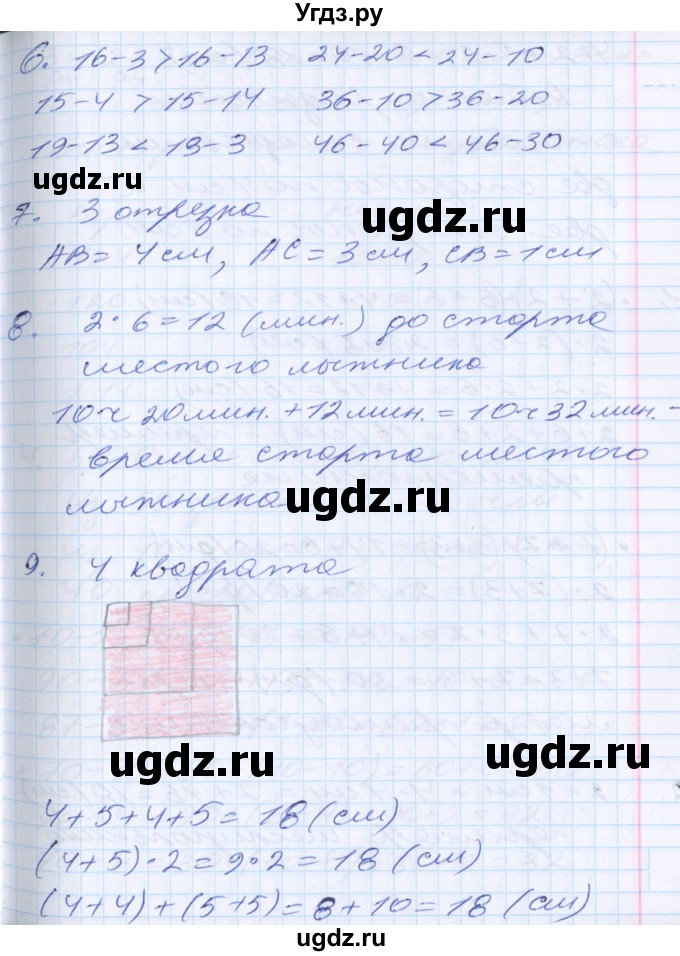 Угдз.ру
6. 16-3>16-13 24-20<24-10
15-4 > 15-14 36-10>36-20
19-13 < 19-3 46-40 < 46-30
ugdz.ru
ugdz.ru
7. 3 отрезка
AB = 4 см, AC = 3 см, CB = 1 см
8. 2·6=12 (мин.) до старта
шестого лыжника
10 ч 20 мин. + 12 мин. = 10 ч 32 мин. -
время старта шестого
лыжника
ugdz.ru
9. 4 квадрата
ugdz.ru
ugdz.ru
4+5+4+5=18 (см)
(4+5)·2=9·2=18 (см)
(4+4)+(5+5)=8+10=18 (см)
ugdz.ru